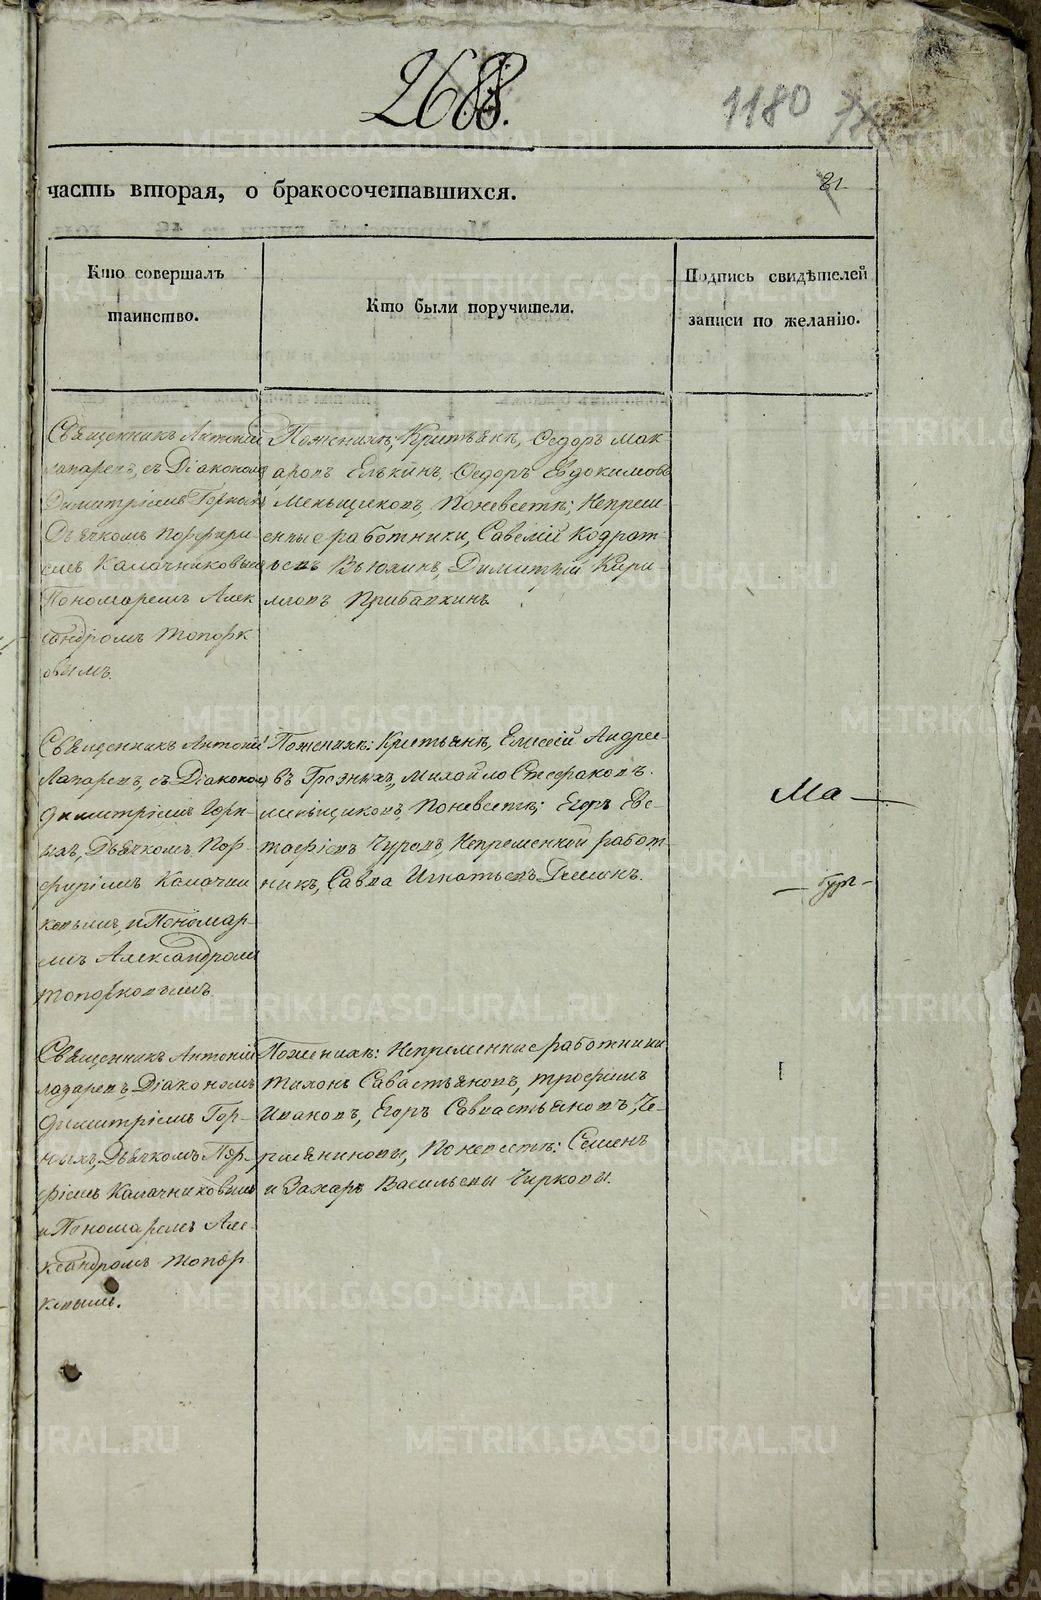 268.
1180
часть вторая, о бракосочетавшихся.
21
Кто совершалъ
таинство.
Кто были поручители.
Подпись свидѣтелей
записи по желанію.
Священникъ Антоній
Лазаревъ, съ Діакономъ
Димитріемъ Горныхъ
Дьячкомъ Порфири-
емъ Калачниковымъ
Пономаремъ Алек
сандромъ Топорк
овымъ.
Поженихѣ; Крестьянѣ, Ѳедоръ Мак
аровъ Елькинъ, Ѳедоръ Евдокимовъ
Меньщиковъ, Поневестѣ; Непрем
енные работники, Савелій Кодрат
ьевъ Вьюхинъ, Димитрій Кири
лловъ
Священникъ Антоній
Лазаревъ, съ Діакономъ
Димитріемъ Горн-
ыхъ, Дьячкомъ Пор-
фиріемъ Калачни
ковымъ, и Пономар-
емъ Александромъ
Топорковымъ.
Поженихѣ: Крестьянѣ, Елисей Андрее-
въ Грозныхъ, Михайло Стефановъ.
меньщиковъ, Поневестѣ; Егоръ Евс-
тафіевъ Чуровъ, Непременной работ-
никъ, Савва Игнатьевъ Деминъ.
Ма
бург
Священникъ Антоній
лазаревъ, Діакономъ
Димитріемъ Гор-
ныхъ, Дьячкомъ Пор-
фіемъ Калачниковымъ
и Пономаремъ Але-
ксандромъ топор
ковымъ.
Поженихѣ: Непременные работники
Тихонъ Савастьяновъ, трофимъ
Ивановъ, Егоръ Савастьяновъ, Че-
ремяниковы, Поневестѣ: Семенъ
и Захаръ Васильевы Чирковы.
METRIKI.GASO-URAL.RU